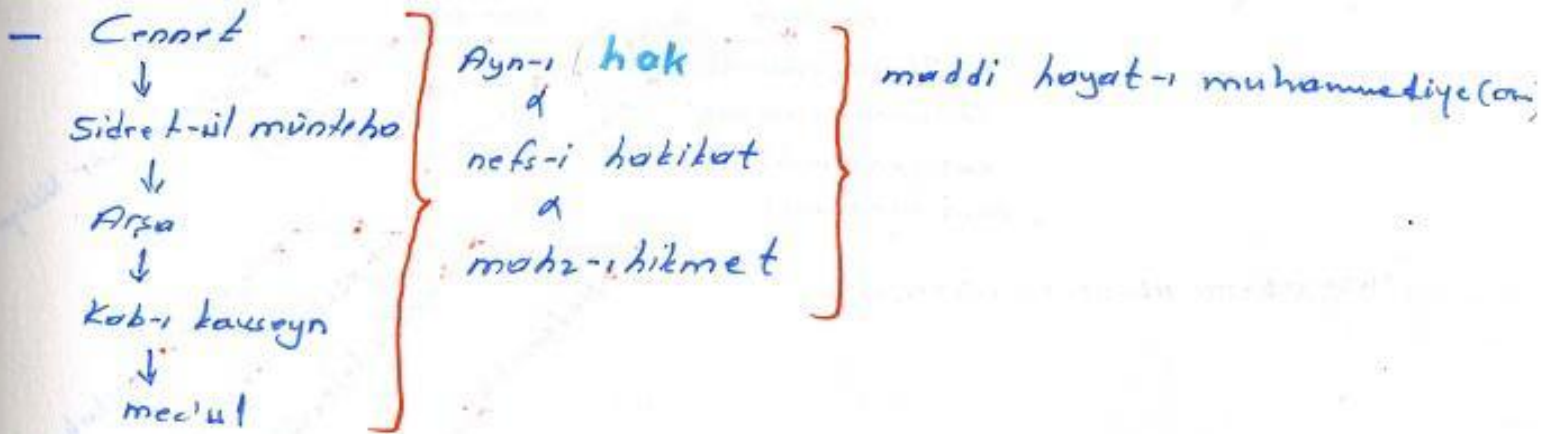 - Cennet
↓
Sidret-ül münteha
↓
Arşa
↓
Kab-ı kavseyn
↓
mec'ul
Ayn-ı hak
α
nefs-i hakikat
α
mahz-ı hikmet
maddi hayat-ı muhammediye